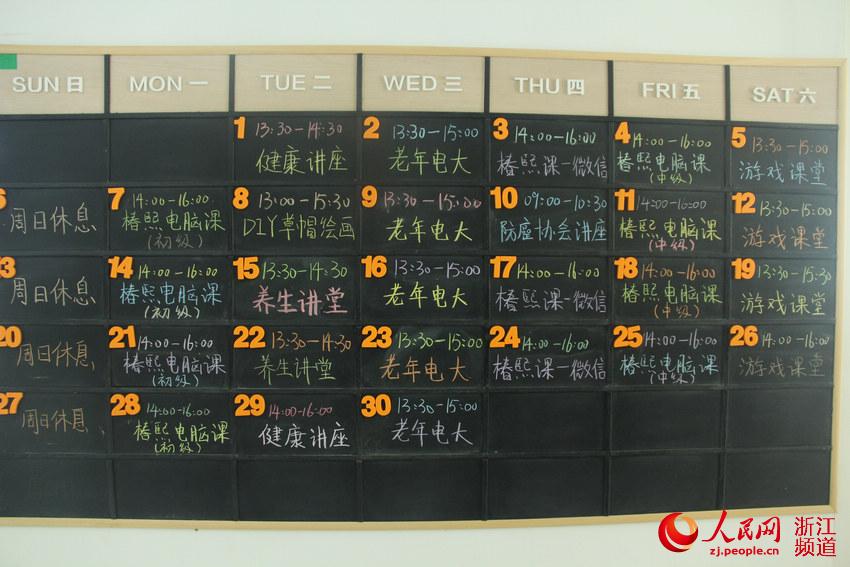 SUN 日 MON 一 TUE 二 WED 三 THU 四 FRI 五 SAT 六
1 13:30-14:30
健康讲座
2 13:30-15:00
老年电大
3 14:00-16:00
椿熙课-微信
4 14:00-16:00
椿熙电脑课
(中级)
5 13:30-15:00
游戏课堂
6
周日休息
7 14:00-16:00
椿熙电脑课
(初级)
8 13:00-15:30
DIY草帽绘画
9 13:30-15:00
老年电大
10 09:00-10:30
防癌协会讲座
11 14:00-16:00
椿熙电脑课
(中级)
12 13:30-15:00
游戏课堂
3
周日休息
14 14:00-16:00
椿熙电脑课
(初级)
15 13:30-14:30
养生讲堂
16 13:30-15:00
老年电大
17 14:00-16:00
椿熙课-微信
18 14:00-16:00
椿熙电脑课
(中级)
19 13:30-15:30
游戏课堂
20
周日休息
21 14:00-16:00
椿熙电脑课
(初级)
22 13:30-14:30
养生讲堂
23 13:30-15:00
老年电大
24 14:00-16:00
椿熙课-微信
25 14:00-16:00
椿熙电脑课
(中级)
26 14:00-16:00
游戏课堂
27
周日休息
28 14:00-16:00
椿熙电脑课
(初级)
29 14:00-16:00
健康讲座
30 13:30-15:00
老年电大
人民网 浙江
zj.people.cn 频道